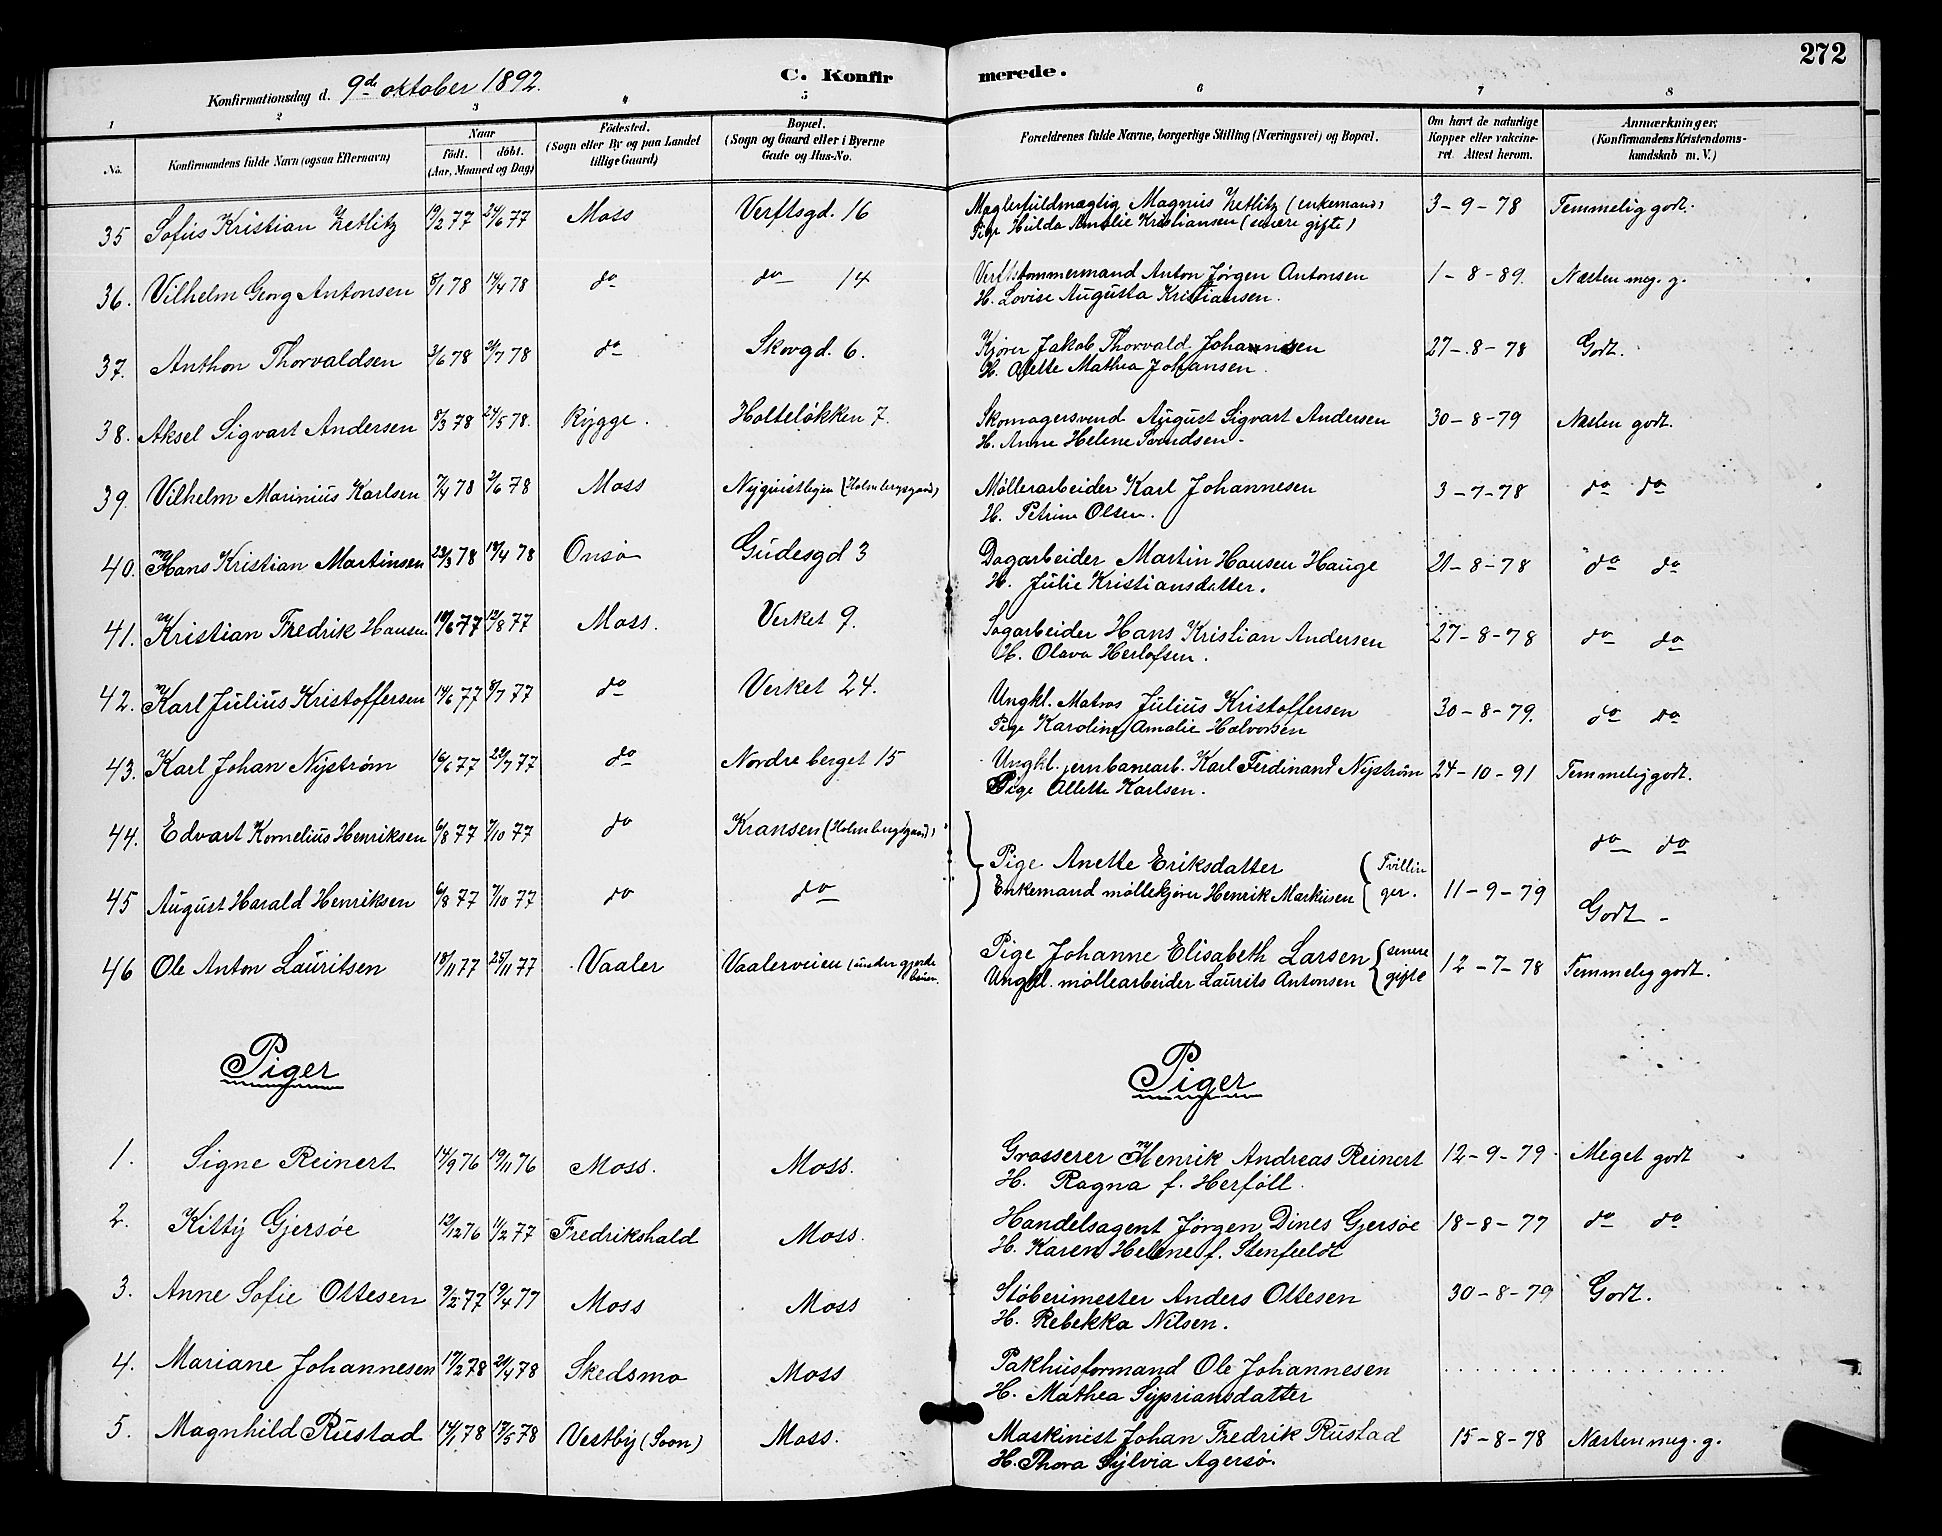 272
Konfirmationsdag d. 9de oktober 1892.
C. Konfirmerede.
1 2 3 4 5 6 7 8
No. Konfirmandens fulde Navn (ogsaa Efternavn) Naar født. døbt. (Aar, Maaned og Dag) Fødested. (Sogn eller By og paa Landet tillige Gaard) Bopæl. (Sogn og Gaard eller i Byerne Gade og Hus-No. Forældrenes fulde Navne, borgerlige Stilling (Næringsvei) og Bopæl. Om havt de naturlige Kopper eller vakcineret. Attest herom. Anmærkninger. (Konfirmandens Kristendomskundskab m. V.)
35 Sofus Kristian Zetlitz 19/2 77 24/6 77 Moss Verftsgd. 16 Mæglerfuldmægtig Magnus Zetlitz (enkemand) 3-9-78 Temmelig godt.
Pige Hulda Amalie Kristiansen (senere gifte)
36. Vilhelm Georg Antonsen 8/1 78 14/4 78 do do 14 Verftstømmermand Anton Jørgen Antonsen 1-8-89. Næsten meg. g.
H. Lovise Augusta Kristiansen.
37. Anthon Thorvaldsen 3/6 78 21/7 78 do Skovgd. 6. Kjører Jakob Thorvald Johannsen 27-8-78 Godt.
H. Mathea Johansen.
38. Aksel Sigvart Andersen 8/3 78 24/5 78. Rygge. Holteløkken 7. Skomagersvend August Sigvart Andersen 30-8-79 Næsten godt.
H. Anne Helene Svendsen.
39. Vilhelm Marinius Karlsen 7/4 78 2/6 78 Moss Nyquistbyen (Holmbergsgaard) Møllerarbeider Karl Johannesen 3-7-78 do do
H. Petrine Olsen.
40. Hans Kristian Martinsen 23/3 78 19/4 78 Onsø Gudesgd 3 Dagarbeider Martin Hansen Hauge 21-8-78 do do
H. Julie Kristiansdatter.
41. Kristian Fredrik Hansen 19/6 77 12/8 77 Moss. Verket 9. Sagarbeider Hans Kristian Andersen 27-8-78 do do
H. Olava Herlofsen.
42. Karl Julius Kristoffersen 14/6 77 8/7 77 do Verket 24. Ungkl. Matros Julius Kristoffersen 30-8-79. do do
Pige Karoline Amalie Halvorsen
43. Karl Johan Nystrøm 16/6 77 22/7 77 do Nordre berget 15 Ungkl. jernbanearb. Karl Ferdinand Nystrøm 24-10-91 Temmelig godt.
Pige Allette Karlsen.
44. Edvart Kornelius Henriksen 6/8 77 7/10 77 do Kransen (Holmbergsgaard) do do
Pige Anette Eriksdatter Tvillin
45 August Harald Henriksen 6/8 77 7/10 77 do do Enkemand møllekjører Henrik Markusen ger. 11-9-79 Godt
46 Ole Anton Lauritsen 18/11 77 25/11 77 Vaaler Vaalerveien (under Pige Johanne Elisabeth Larsen senere 12-7-78 Temmelig godt.
Ungkl. møllearbeider Laurits Antonsen gifte
Piger Piger
1. Signe Reinert 14/9 76 19/11 76 Moss. Moss. Grosserer Henrik Andreas Reinert 12-9-79. Meget godt
H. Ragna f. Herføll.
2. Kitty Gjersøe 12/12 76 11/2 77 Fredrikshald Moss. Handelsagent Jørgen Dines Gjersøe 18-8-77 do do
H. Karen Helene f. Stenfeldt
3. Anne Sofie Ottesen 9/2 77 19/4 77 Moss Moss Støberimester Anders Ottesen 30-8-79 Godt.
H. Rebekka Nilsen.
4. Mariane Johannesen 17/2 78 21/4 78 Skedsmo Moss Pakhusformand Ole Johannesen
H. Mathea Sypriansdatter
5. Magnhild Rustad 14/1 78 19/5 78 Vestby (Soon) Moss. Maskinist Johan Fredrik Rustad 15-8-78 Næsten meg. g.
H. Thora Sylvia Agersø.